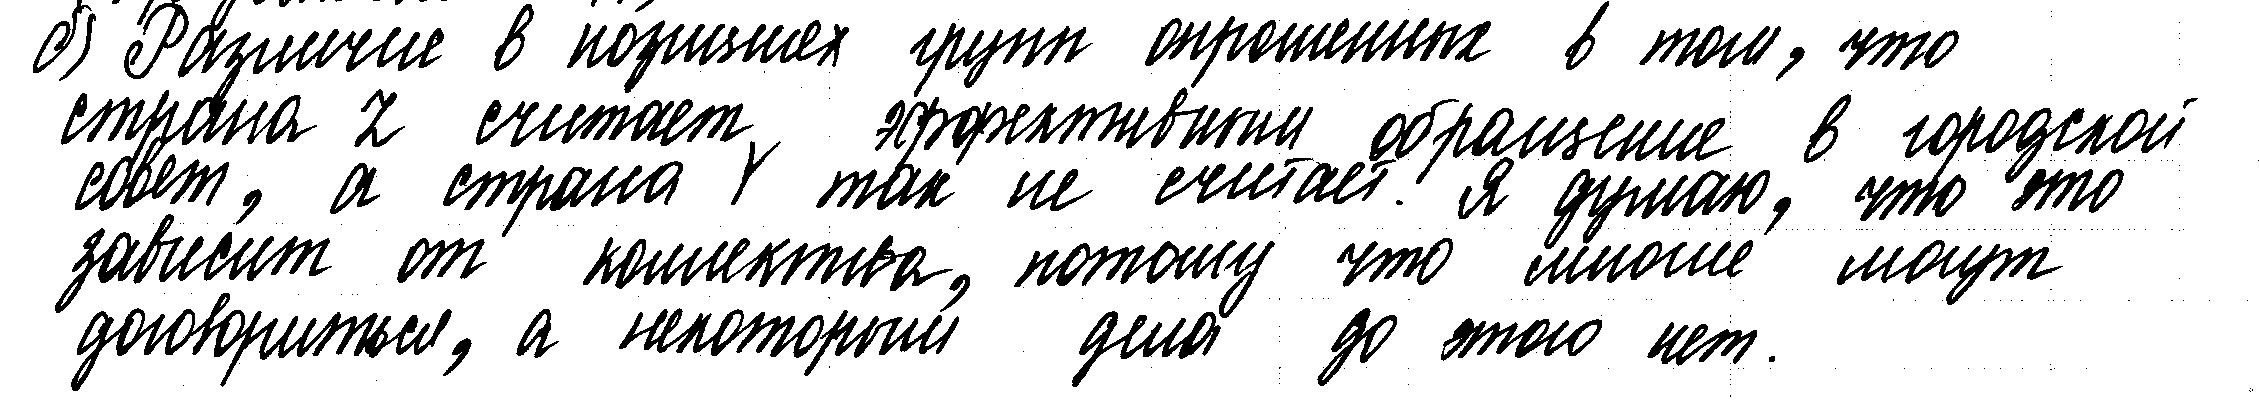 б) Различие в позициях групп опрошенных в том, что
страна Z считает эффективным обращение в городской
совет, а страна Y так не считает. Я думаю, что это
зависит от коллектива, потому что многие могут
договориться, а некоторым дела до этого нет.